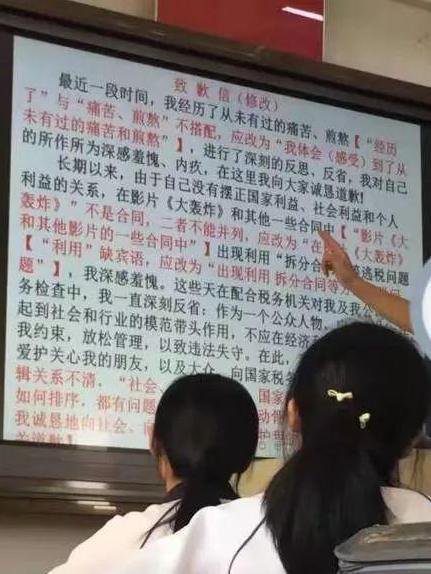 致歉信（修改）
最近一段时间，我经历了从未有过的痛苦、煎熬【“经历
了”与“痛苦、煎熬”不搭配，应改为“我体会（感受）到了从
未有过的痛苦和煎熬”】，进行了深刻的反思、反省，我对自己
的所作所为深感羞愧、内疚，在这里我向大家诚恳道歉！
长期以来，由于自己没有摆正国家利益、社会利益和个人
利益的关系，在影片《大轰炸》和其他一些合同中【“影片《大
轰炸》”不是合同，二者不能并列，应改为“在《大轰炸》
和其他影片的一些合同中”】出现利用“拆分合 逃税问题
【“利用”缺宾语，应改为“出现利用 拆分合同等
题”】，我深感羞愧。这些天在配合税务机关对我及我公
务检查中，我一直深刻反省：作为一个公众人物，
起到社会和行业的模范带头作用，不应在经济
我约束，放松管理，以致违法失守。在此，
爱护关心我的朋友，以及大众，向国家税务
辑关系不清，“社会、 国家
如何排序，都有问题
我诚恳地向社会、 护